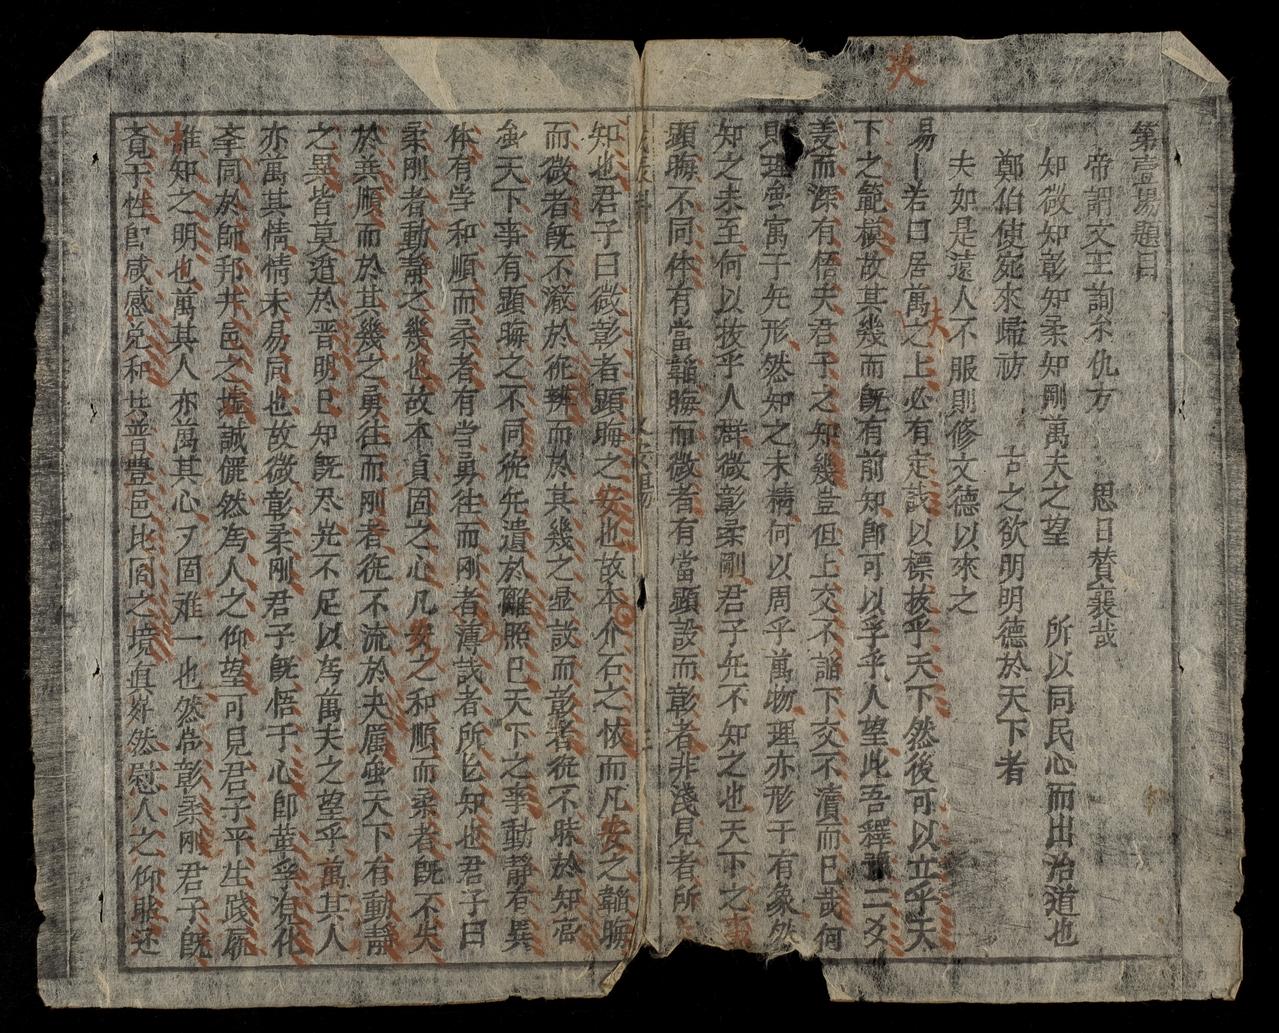 第壹場題目
帝謂文王詢尔仇方 思日贊襄哉
知微知彰知柔知剛萬夫之望 所以同民心而出治道也
鄭伯使宛來歸祊 古之欲明明德於天下者
夫如是遠人不服則修文德以來之
易 若曰居萬之上必有定 以標拔乎天下然後可以立乎天
下之範模故其幾而既有前知即可以孚乎人望此吾釋 二爻
羙而深有悟夫君子之知幾豈但上交不謟下交不瀆而已哉何
則理 寓于旡形然知之未精何以周乎萬物理亦形于有象然
知之未至何以拔乎人群微彰柔剛君子旡不知之也天下之事
顕晦不同体有當韜晦而微者有當顕設而彰者非淺見者所
知也君子曰微彰者顕晦之安也故本介石之 而凡安之韜晦
而微者既不 於 辨而於其幾之显設而彰者 不昧於知
虽天下事有顕晦之不同 旡遺於離照已天下之事動静有異
体有当和順而柔者有当勇往而剛者薄 者所 知也君子曰
柔剛者動靜之幾也故本貞固之心凡安之和順而柔者既不失
於巽順而於其幾之勇往而剛者 不流於夬厲虽天下有動靜
之異皆莫逃於晋明已知既尽 不足以為萬夫之望乎萬其人
亦萬其情情未易同也故微彰柔剛君子既悟于心即 孚 化
夲同於師邦井邑之墟誠儼然為人之仰望可見君子平生踐
惟知之明也萬其人亦萬其心 固难一也然 彰柔剛君子既
于性即咸感兌和共普豊邑比同之境真 然慰人之仰